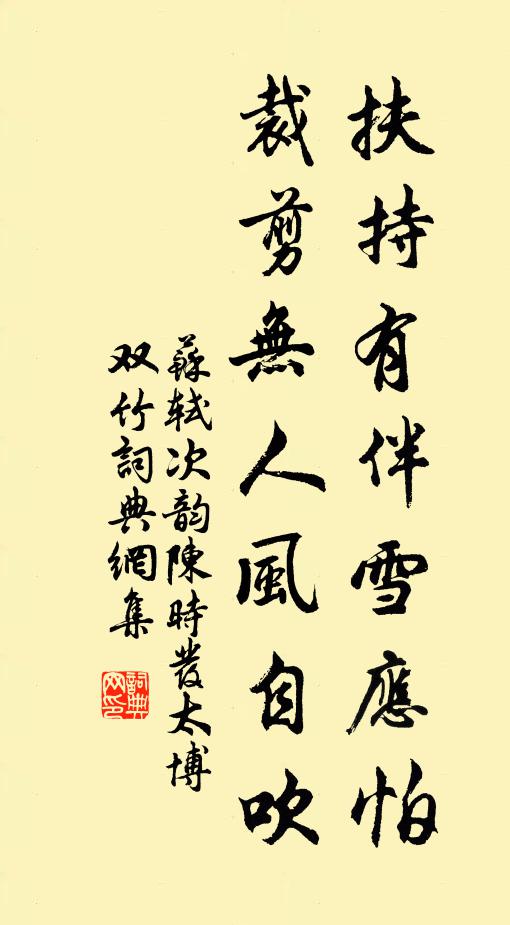 扶持有伴雪應怕
裁剪無人風自吹
蘇軾次韵陳時發太博
双竹詞典網集
詞典网印